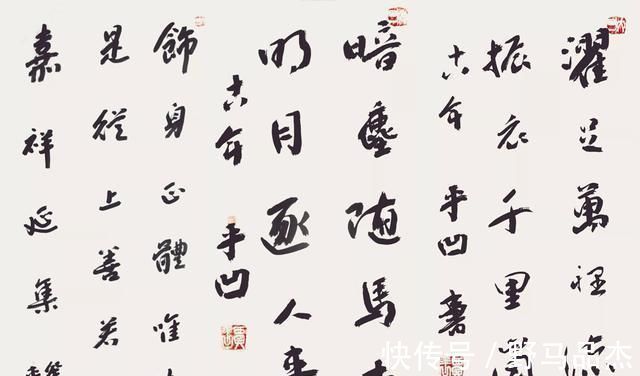 濯足萬裡
振衣千里
十六年 平凹書
暗塵随馬去
明月逐人來
十六年 平凹
飾身正體唯
是從上善若
嘉祥延集
快传号/野马品杰